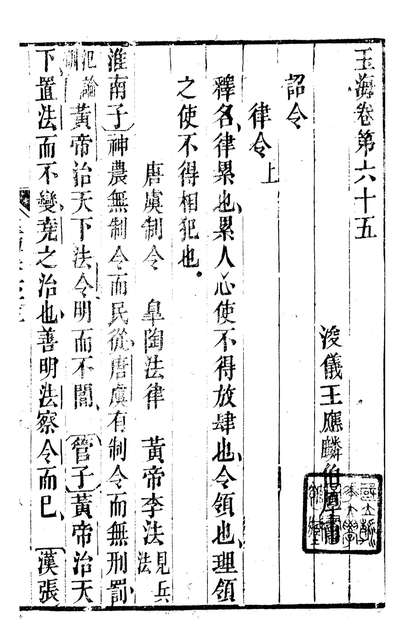 玉海卷第六十五
浚儀王應麟伯厚甫
詔令
律令上
釋名律累也累人心使不得放肆也令領也理領
之使不得相犯也
唐虞制令 皐陶法律 黃帝李法見兵法
淮南子神農無制令而民從唐虞有制令而無刑罰
氾論黃帝治天下法令明而不闇管子黃帝治天
下置法而不變堯之治也善明法察令而已漢張